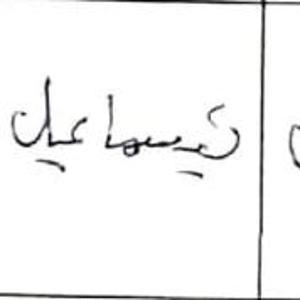 ئیسماعیل